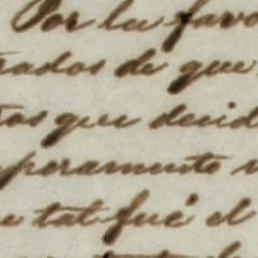 Por la favo
rados de que
tos que decid
peramento
e tal fué el